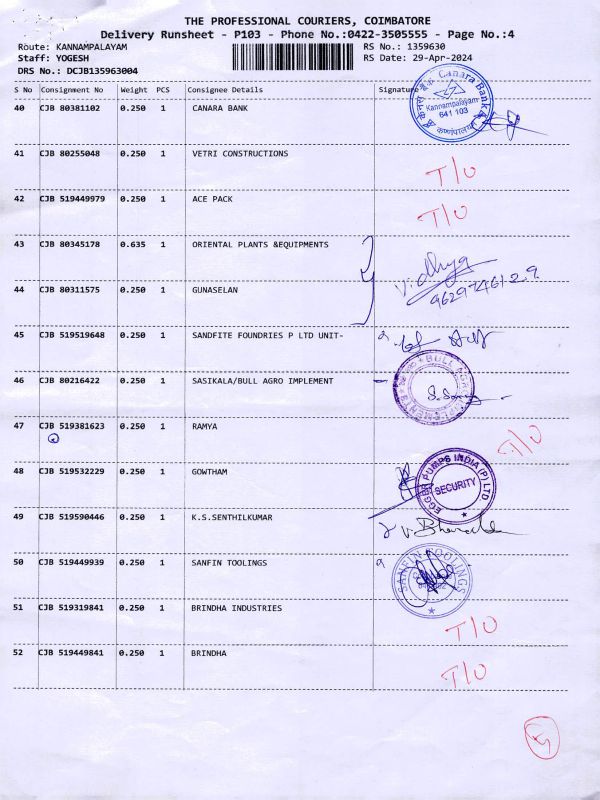 THE PROFESSIONAL COURIERS, COIMBATORE
Delivery Runsheet - P103 - Phone No.:0422-3505555 - Page No.:4
Route: KANNAMPALAYAM
RS No.: 1359630
Staff: YOGESH
RS Date: 29-Apr-2024
DRS No.: DCJB135963004
S No Consignment No Weight PCS Consignee Details Signature
40 CJB 80381102 0.250 1 CANARA BANK
Canara Bank
Kannampalayam
641 103
41 CJB 80255048 0.250 1 VETRI CONSTRUCTIONS T/O
42 CJB 519449979 0.250 1 ACE PACK T/O
43 CJB 80345178 0.635 1 ORIENTAL PLANTS &EQUIPMENTS
Vidhya
44 CJB 80311575 0.250 1 GUNASELAN
45 CJB 519519648 0.250 1 SANDFITE FOUNDRIES P LTD UNIT-
46 CJB 80216422 0.250 1 SASIKALA/BULL AGRO IMPLEMENT
BULL AGRO IMPLEMENTS
47 CJB 519381623 0.250 1 RAMYA T/O
48 CJB 519532229 0.250 1 GOWTHAM
EGGER PUMPS INDIA (P) LTD.
SECURITY
49 CJB 519590446 0.250 1 K.S.SENTHILKUMAR
50 CJB 519449939 0.250 1 SANFIN TOOLINGS
SANFIN TOOLINGS
51 CJB 519319841 0.250 1 BRINDHA INDUSTRIES T/O
52 CJB 519449841 0.250 1 BRINDHA T/O